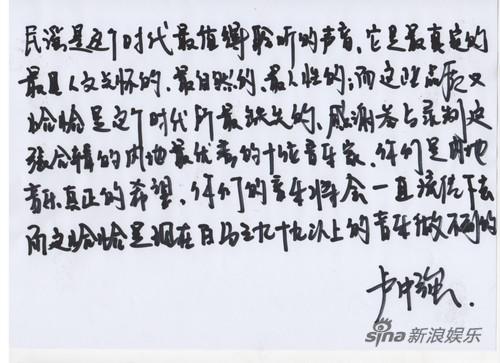 民谣是这个时代最值得聆听的声音，它是最真实的
最具人文关怀的、最自然的、最人性的；而这些品质又
恰恰是这个时代所最缺失的、感谢参与录制这
张合辑的内地最优秀的十位音乐家，你们是内地
音乐真正的希望，你们的音乐将会一直流传下去
而这恰恰是现在百分之九十九以上的音乐做不到的
卢中强.
sina 新浪娱乐